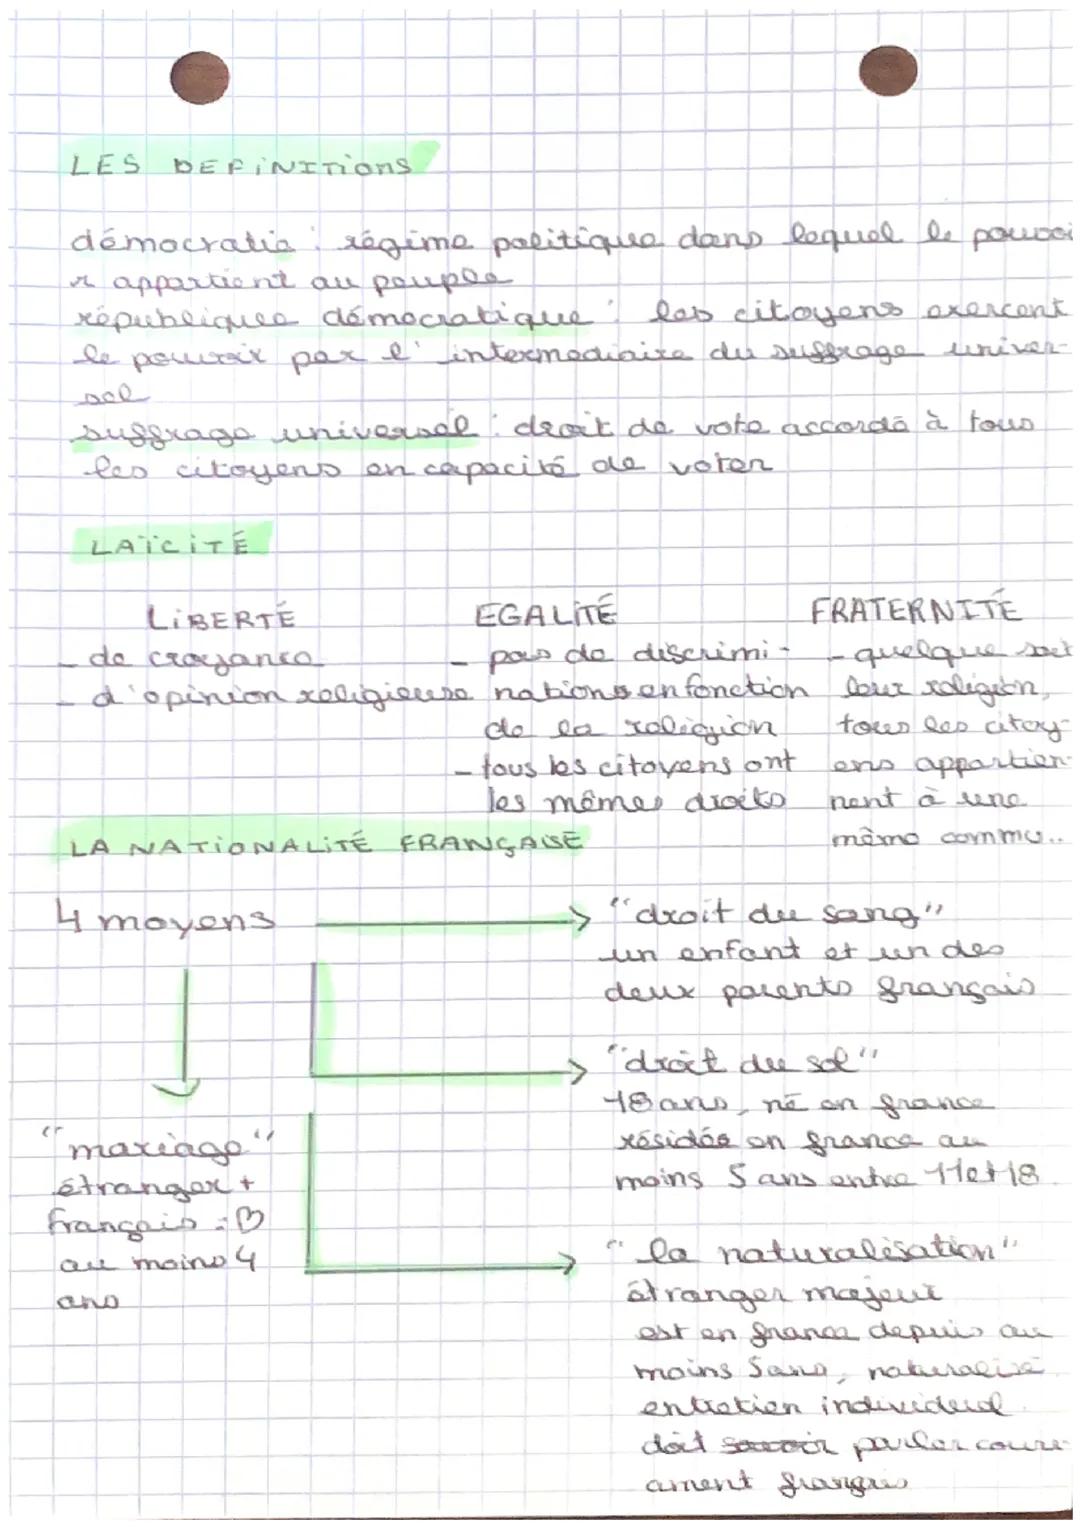 LES DEFINITIONS
démocratie : régime politique dans lequel le pouvoi
r appartient au peuple
républiques démocratique : les citoyens exercent
le pouvoir par l'intermediaire du suffrage univer-
sel
suffrage universel : droit de vote accordé à tous
les citoyens en capacité de voter
LAÏCITÉ
LIBERTÉ
- de croyance
- d'opinion religieuse
EGALITÉ
- pas de discrimi-
nations en fonction
de la religion
- tous les citoyens ont
les mêmes droits
FRATERNITÉ
- quelque soit
leur religion,
tous les citoy-
ens appartien-
nent à une
même commu..
LA NATIONALITÉ FRANÇAISE
4 moyens
"droit du sang"
un enfant et un des
deux parents français
"droit du sol"
18 ans, né en france
résidée en france au
moins 5 ans entre 11et18
"mariage"
étranger +
français = ♡
au moins 4
ans
"la naturalisation"
étranger majeur
est en france depuis au
moins 5ans, naturalisé
entretien individuel
doit parler cour
ament français